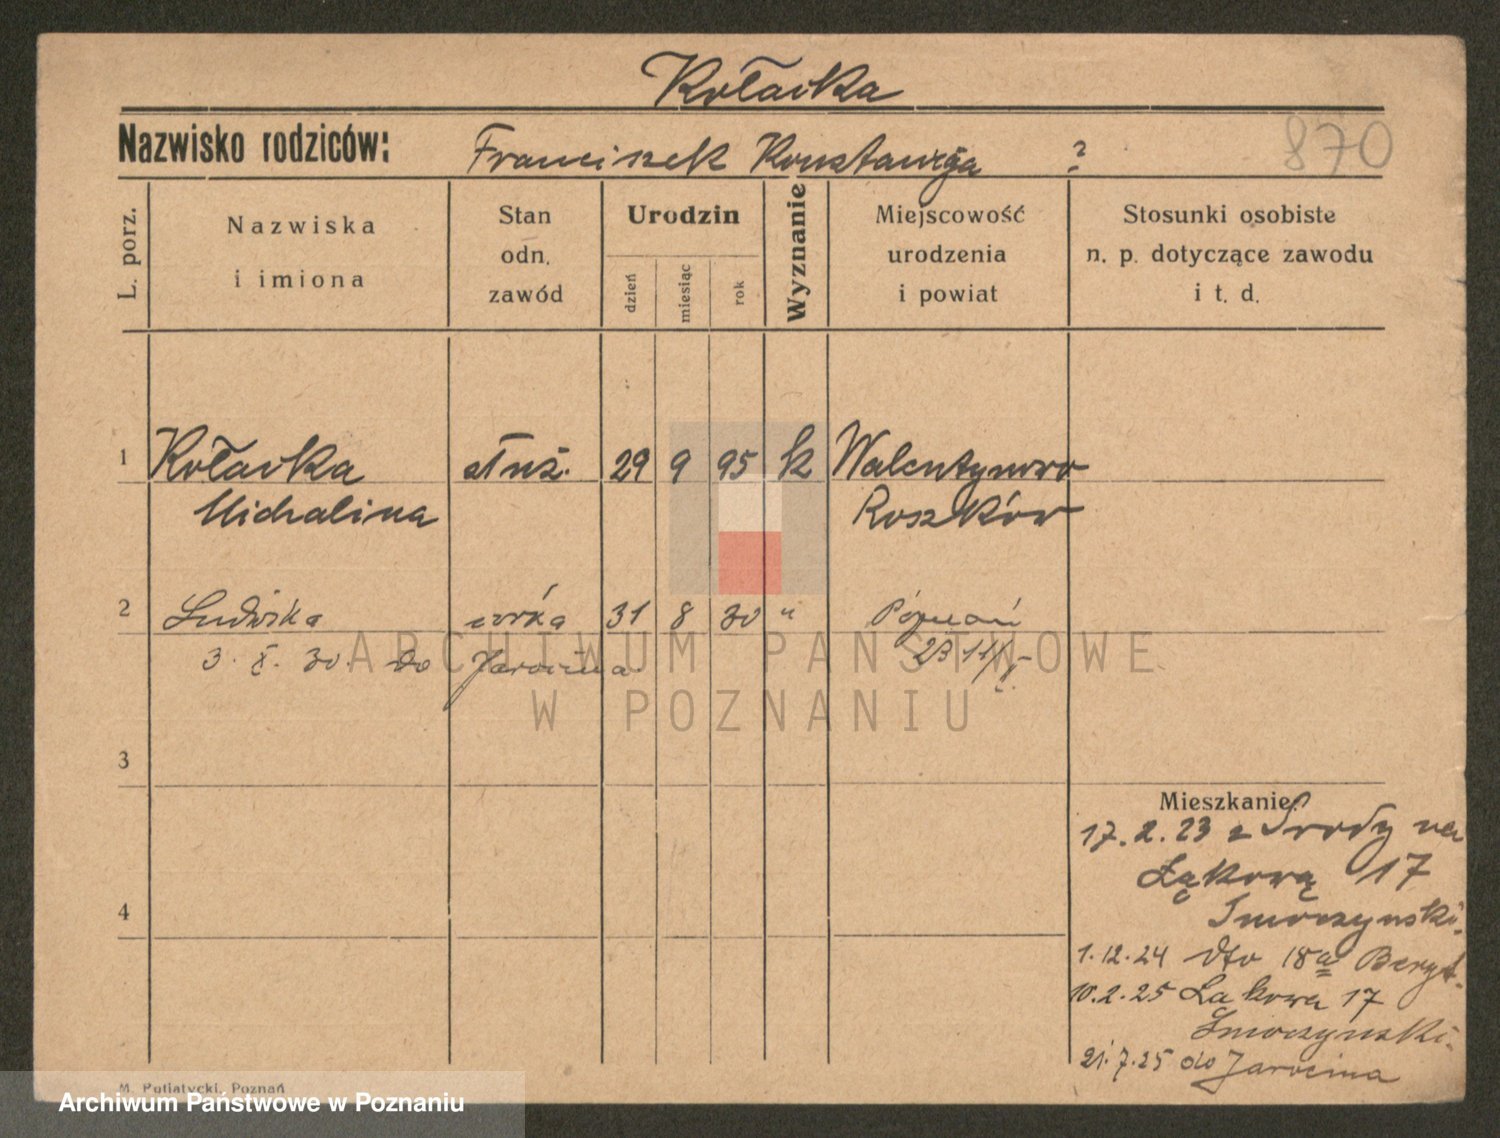 Kołacka
Nazwisko rodziców: Franciszek Konstancja ? 870
L. porz.
Nazwiska i imiona
Stan odn. zawód
Urodzin
dzień
miesiąc
rok
Wyznanie
Miejscowość urodzenia i powiat
Stosunki osobiste n. p. dotyczące zawodu i t. d.
1 Kołacka służ. 29 9 95 k Walentynowo
Michalina Roszków
2 Ludwika córka 31 8 30 " Poznań
3. X. 30. do Jarocina
ARCHIWUM PAŃSTWOWE
W POZNANIU
3
Mieszkanie:
17.2.23 z Środy na
Łąkową 17
4
Smoczyński.
1.12.24 dto 18a
10.2.25 Łąkowa 17
Smoczyński.
21.7.25 do Jarocina
M. Putiatycki, Poznań
Archiwum Państwowe w Poznaniu